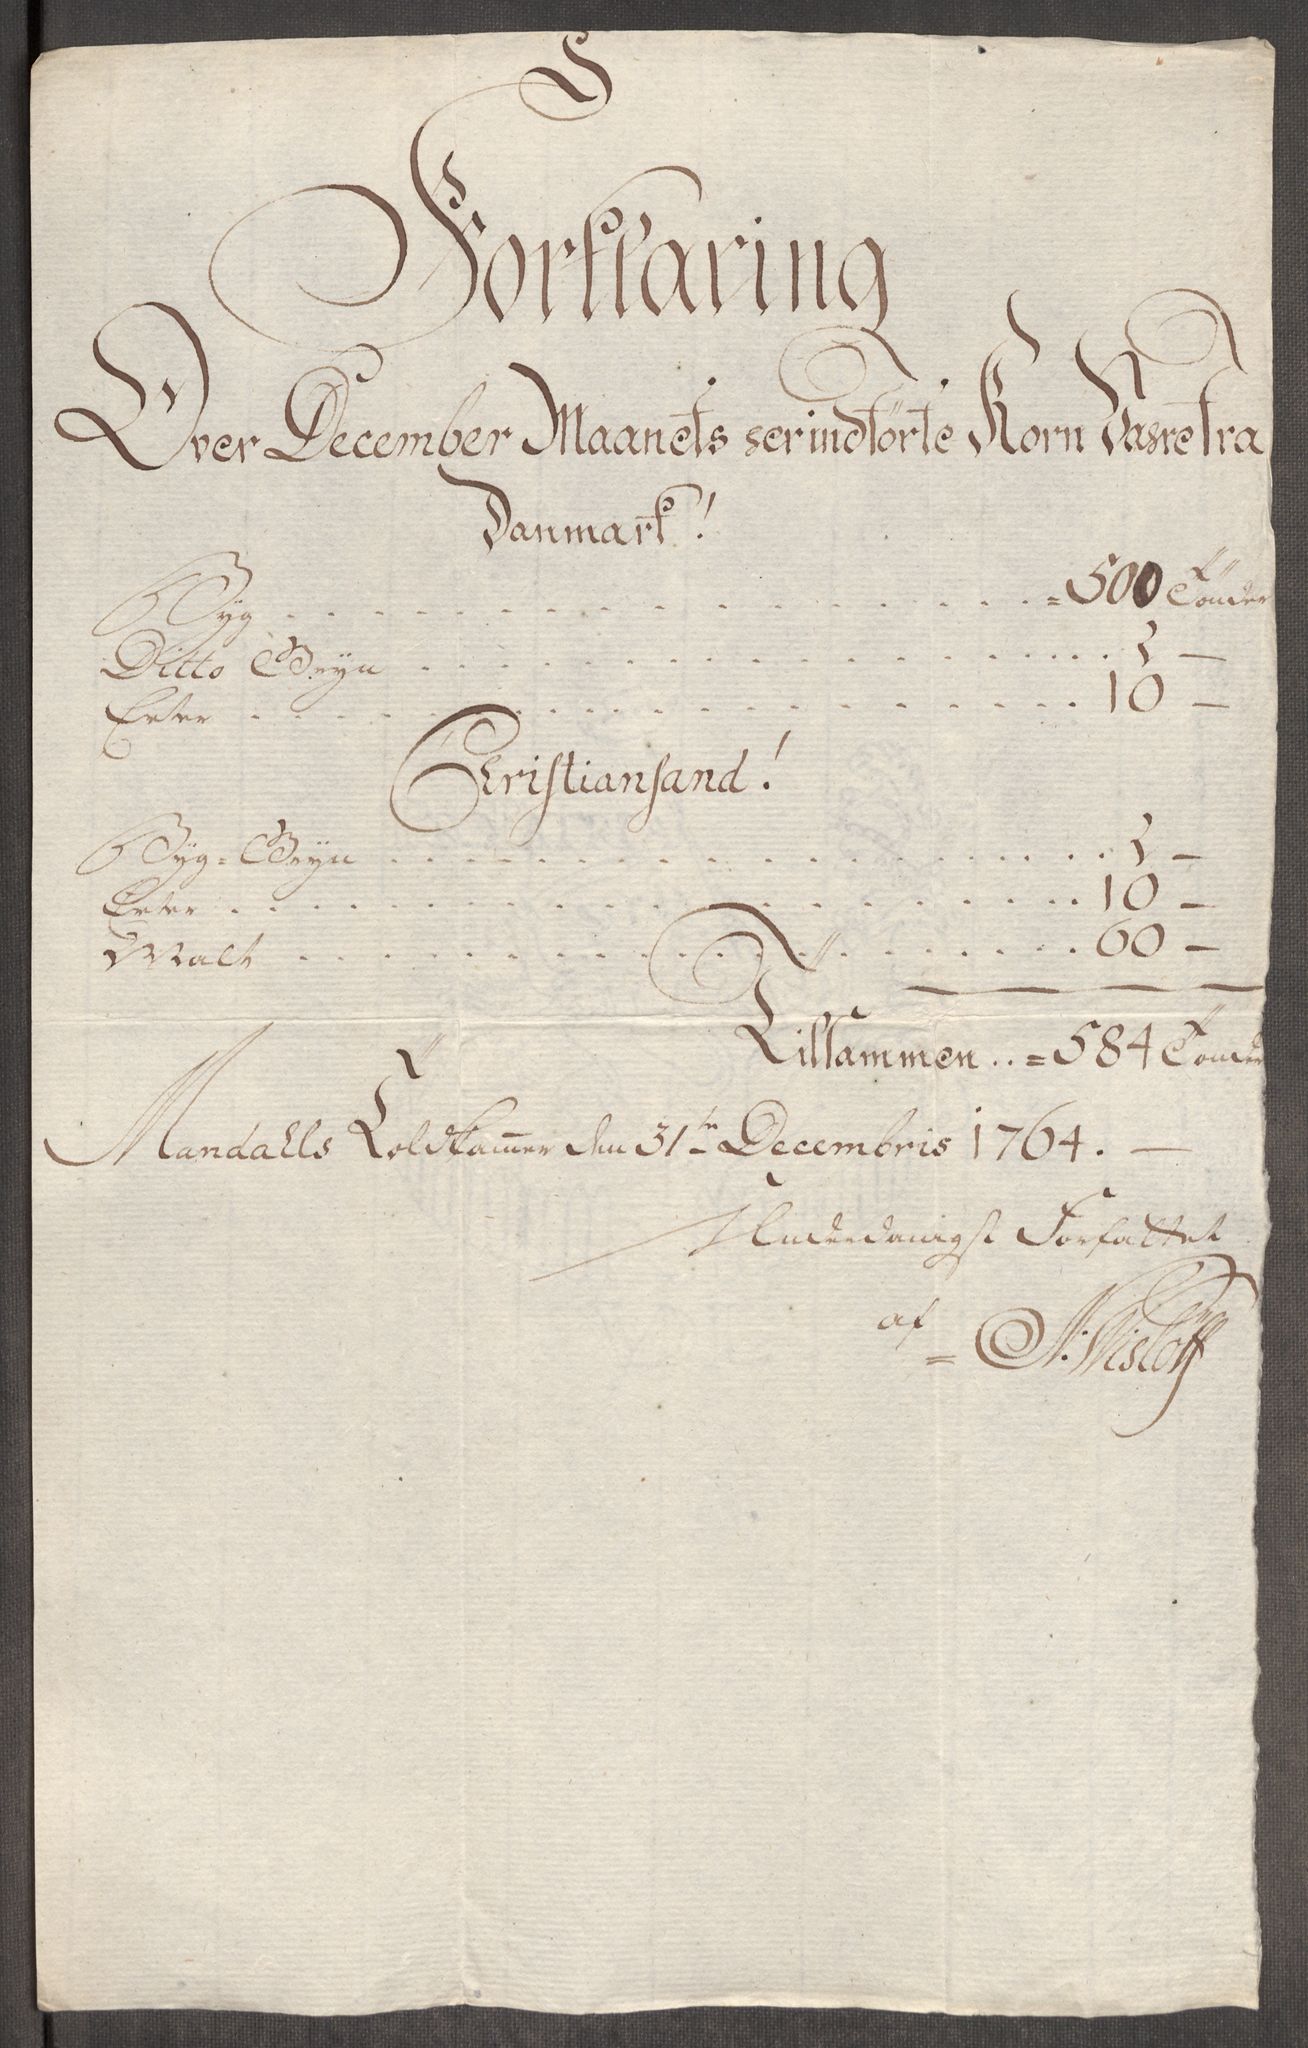 Forklaring
Over December Maanets her indförte Korn Vahre fra
Danmark!
Byg . . . . . = 500 Tönder
Ditto Gryn . . . . . 2 —
Erter . . . . . 10 —
Christiansand!
Byg-Gryn . . . . . 2 —
Erter . . . . . 10 —
Malt . . . . . 60 —
Tilsammen .. = 584 Tönder
Mandahls Toldkam̄er den 31te Decembris 1764. —
Underdanigst Forfattet
af
= N: Wislöff